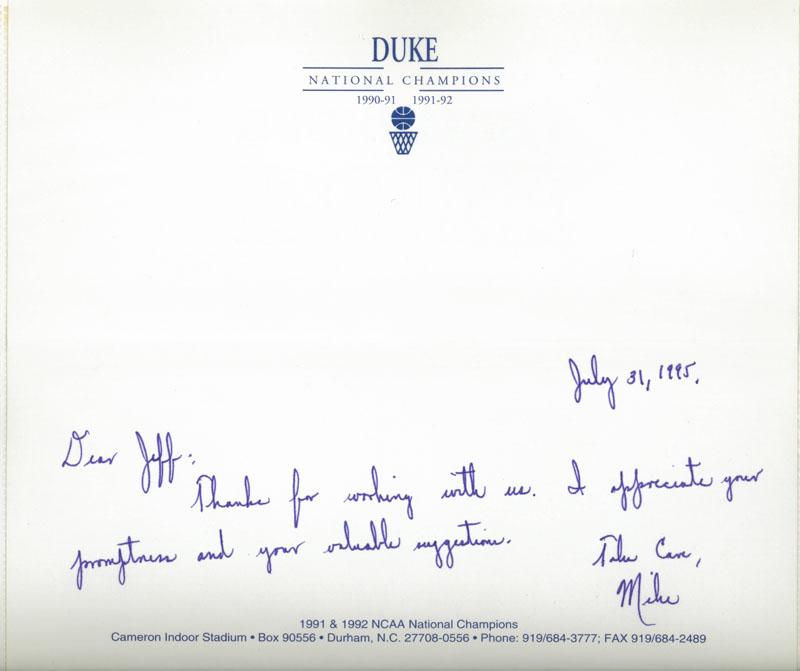 DUKE
NATIONAL CHAMPIONS
1990-91 1991-92
July 31, 1995.
Dear Jeff:
Thanks for working with us. I appreciate your
promptness and your valuable suggestions.
Take Care,
Mike
1991 & 1992 NCAA National Champions
Cameron Indoor Stadium • Box 90556 • Durham, N.C. 27708-0556 • Phone: 919/684-3777; FAX 919/684-2489